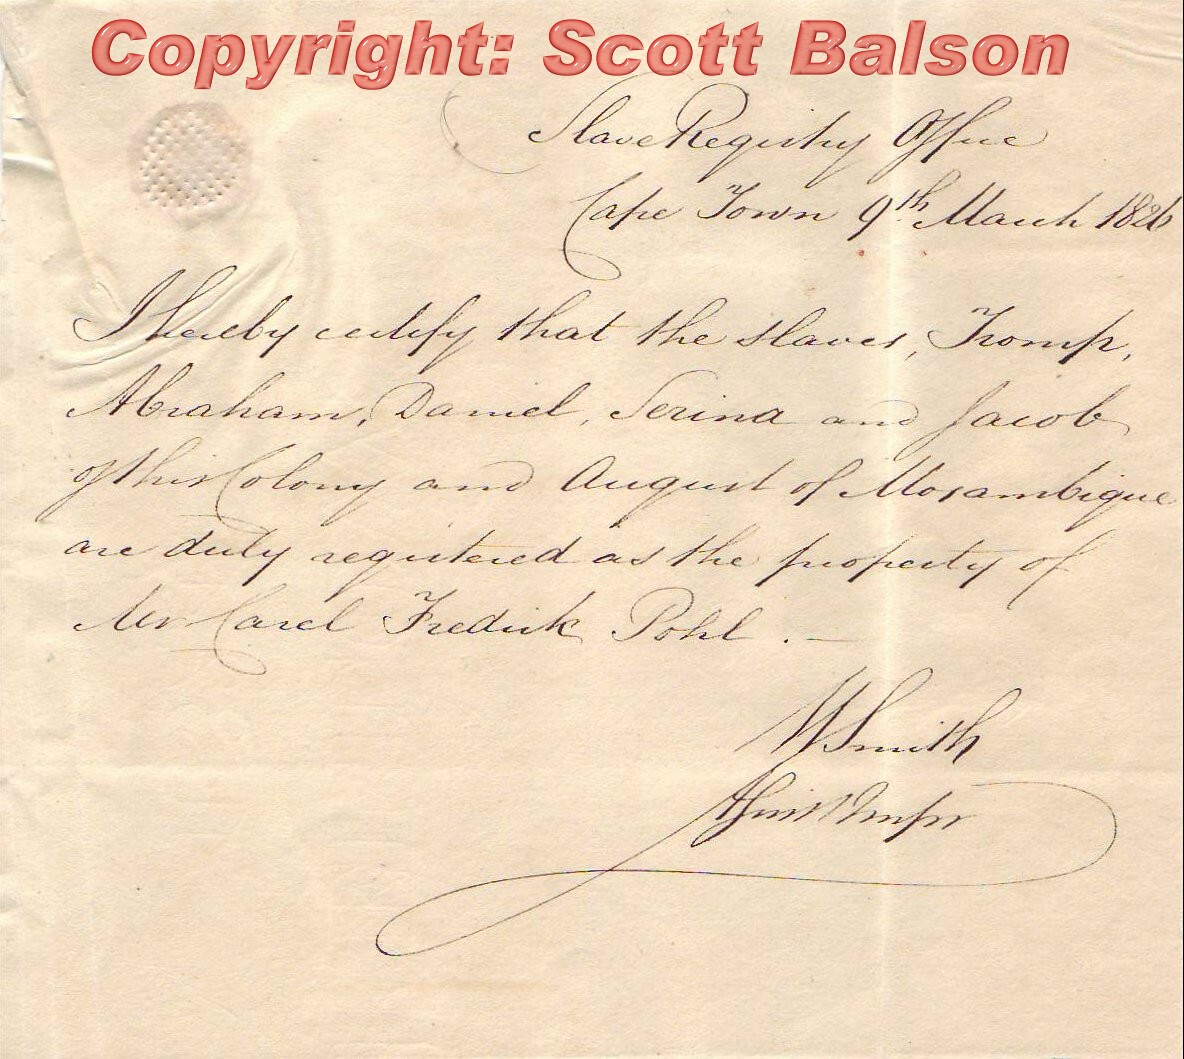 Copyright: Scott Balson
Slave Registry Office
Cape Town 9th March 1826
I hereby certify that the slaves, Tromp,
Abraham, Daniel, Serina and Jacob
of this Colony and August of Mosambique
are duly registered as the property of
Mr Carel Fredrik Pohl . —
W Smith